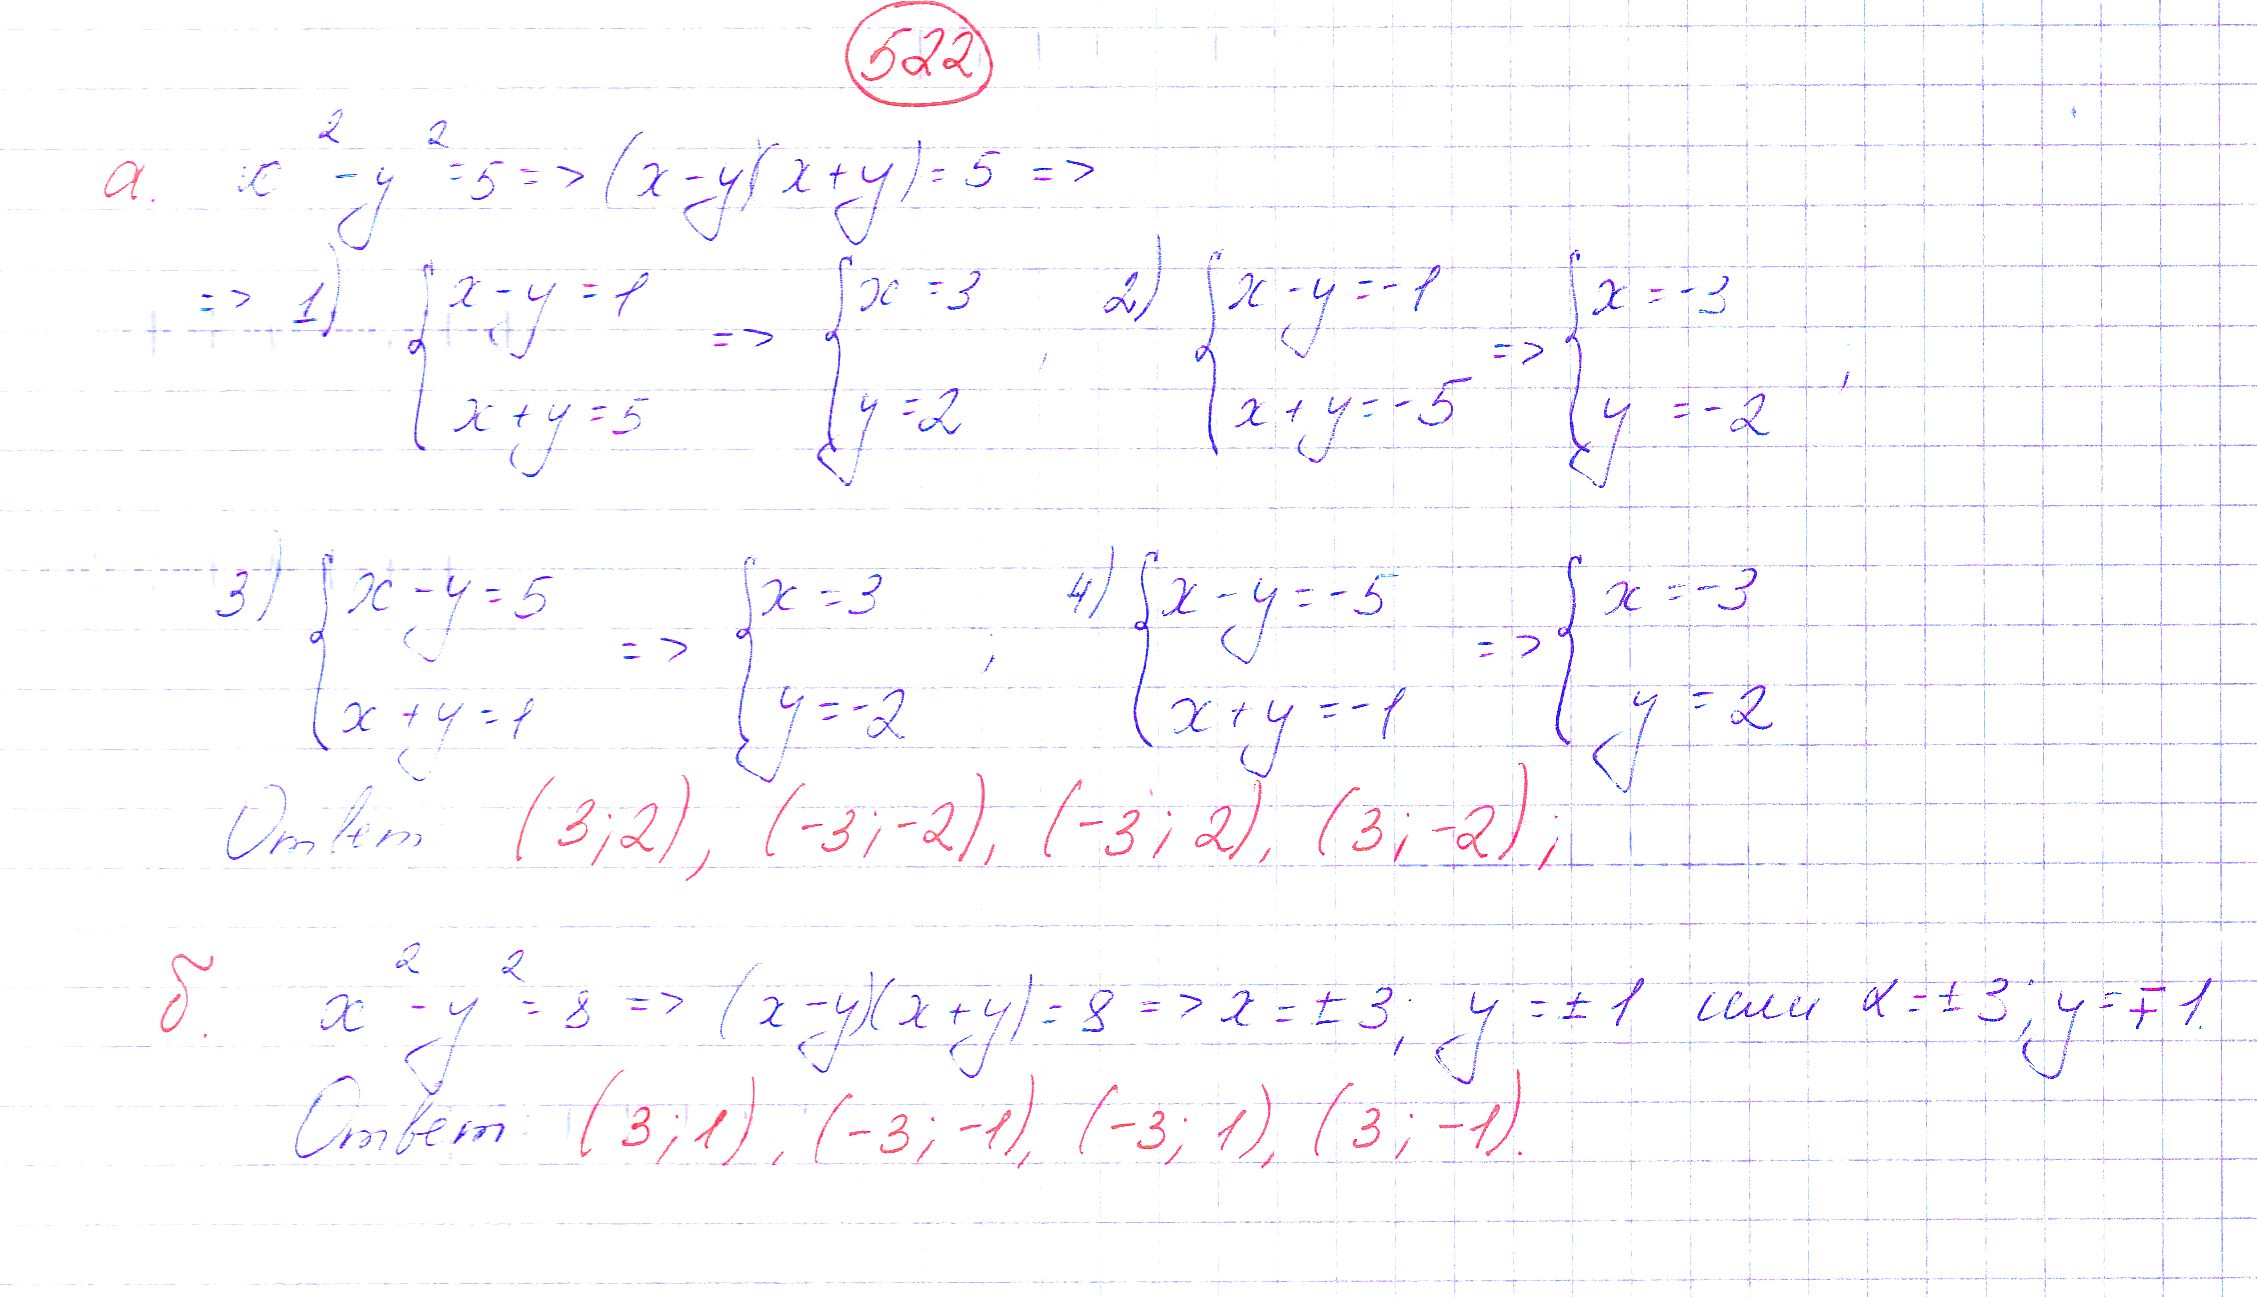 522
а. x² - y² = 5 => (x - y)(x + y) = 5 =>
=> 1) { x - y = 1 x + y = 5 => { x = 3 y = 2 , 2) { x - y = -1 x + y = -5 => { x = -3 y = -2 ,
3) { x - y = 5 x + y = 1 => { x = 3 y = -2 ; 4) { x - y = -5 x + y = -1 => { x = -3 y = 2
Ответ (3;2), (-3;-2), (-3;2), (3;-2);
б. x² - y² = 8 => (x - y)(x + y) = 8 => x = ± 3; y = ± 1 или x = ± 3; y = ∓ 1.
Ответ: (3;1), (-3;-1), (-3;1), (3;-1).